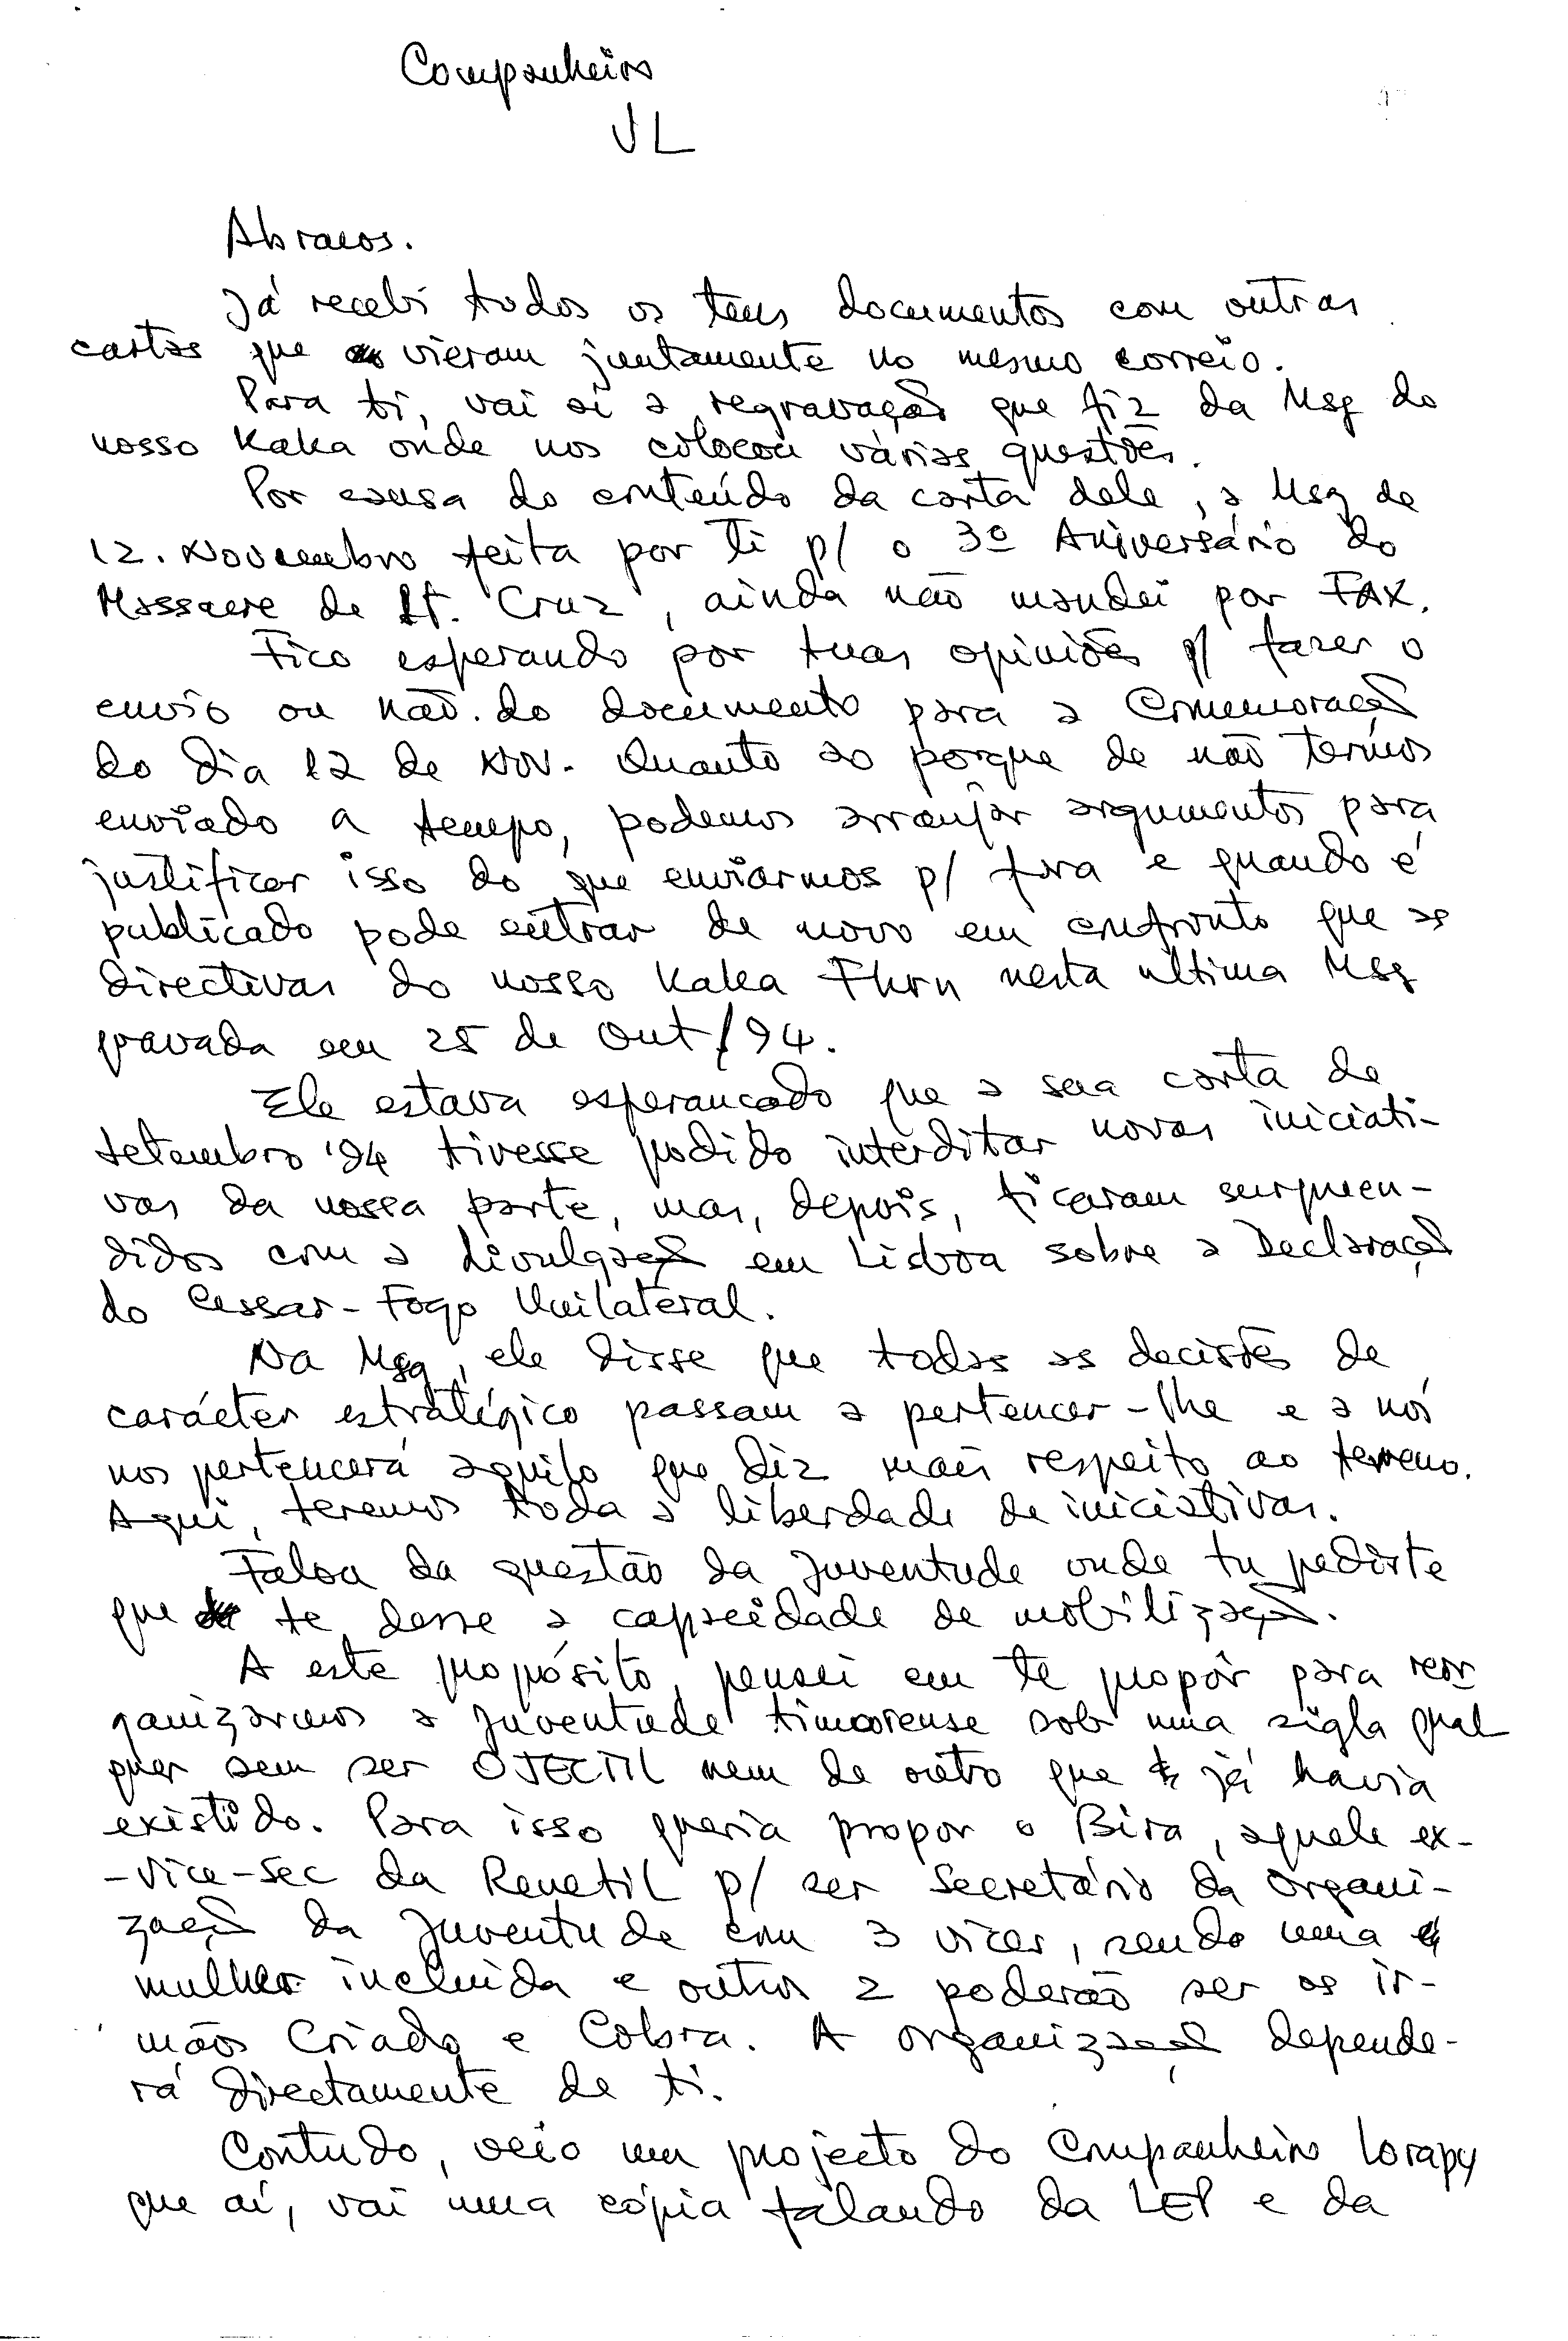 Companheiro
JL
Abracos.
Já recebi todos os teus documentos com outras
cartas que vieram juntamente no mesmo correio.
Para ti, vai aí a regravação que fiz da Msg do
nosso Kaka onde nos colocou várias questões.
Por causa do conteúdo da carta dele, a Msg de
12. Novembro feita por ti p/ o 3º Aniversário do
Massacre de St. Cruz, ainda não mandei por FAX.
Fico esperando por tuas opiniões p/ fazer o
envio ou não do documento para a Comemoração
do dia 12 de Nov. Quanto ao porque de não termos
enviado a tempo, podemos arranjar argumentos para
justificar isso do que enviarmos p/ fora e quando é
publicado pode entrar de novo em confronto que as
directivas do nosso Kaka nesta ultima Msg
gravada em 25 de Out/94.
Ele estava esperancado que a sua carta de
Setembro '94 tivesse podido interditar novas iniciati-
vas da nossa parte, mas, depois, ficaram surpreen-
didos com a divulgação em Lisboa sobre a Declaração
do Cessar-Fogo Unilateral.
Na Msg, ele disse que todas as decisões de
carácter estratégico passam a pertencer-lhe e a nós
nos pertencerá aquilo que diz mais respeito ao terreno.
Aqui, teremos toda a liberdade de iniciativas.
Faloa da questão da juventude onde tu pediste
que te desse a capacidade de mobilização.
A este propósito, pensei em te propôr para reor
ganizarmos a juventude timorense sob uma sigla qual
quer sem ser OJECTIL nem de outro que já havia
existido. Para isso queria propor o Bira, aquele ex-
-vice-sec da Renetil p/ ser Secretário da Organi-
zação da Juventude com 3 vices, sendo uma
mulher incluida e outros 2 poderão ser os ir-
mãos Criado e Cobra. A organização depende-
rá directamente de ti.
Contudo, veio um projecto do Companheiro Lorapy
que aí, vai uma cópia falando da LEP e da